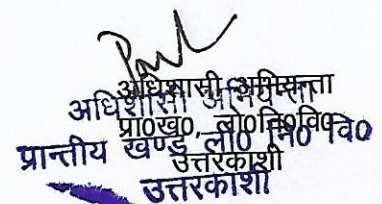 अधिशासी अभियन्ता
प्रा०ख०, लो०नि०वि०
उत्तरकाशी
अधिशासी अभियन्ता
प्रान्तीय खण्ड लो० नि० वि०
उत्तरकाशी